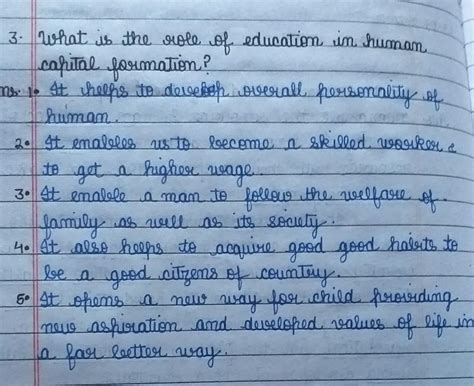 3. What is the role of education in human
capital formation?
ns. 1. It helps to develop overall personality of
human.
2. It enables us to become a skilled worker &
to get a higher wage.
3. It enable a man to follow the welfare of
family as well as its society.
4. It also helps to acquire good good habits to
be a good citizens of country.
5. It opens a new way for child providing
new aspiration and developed values of life in
a far better way.